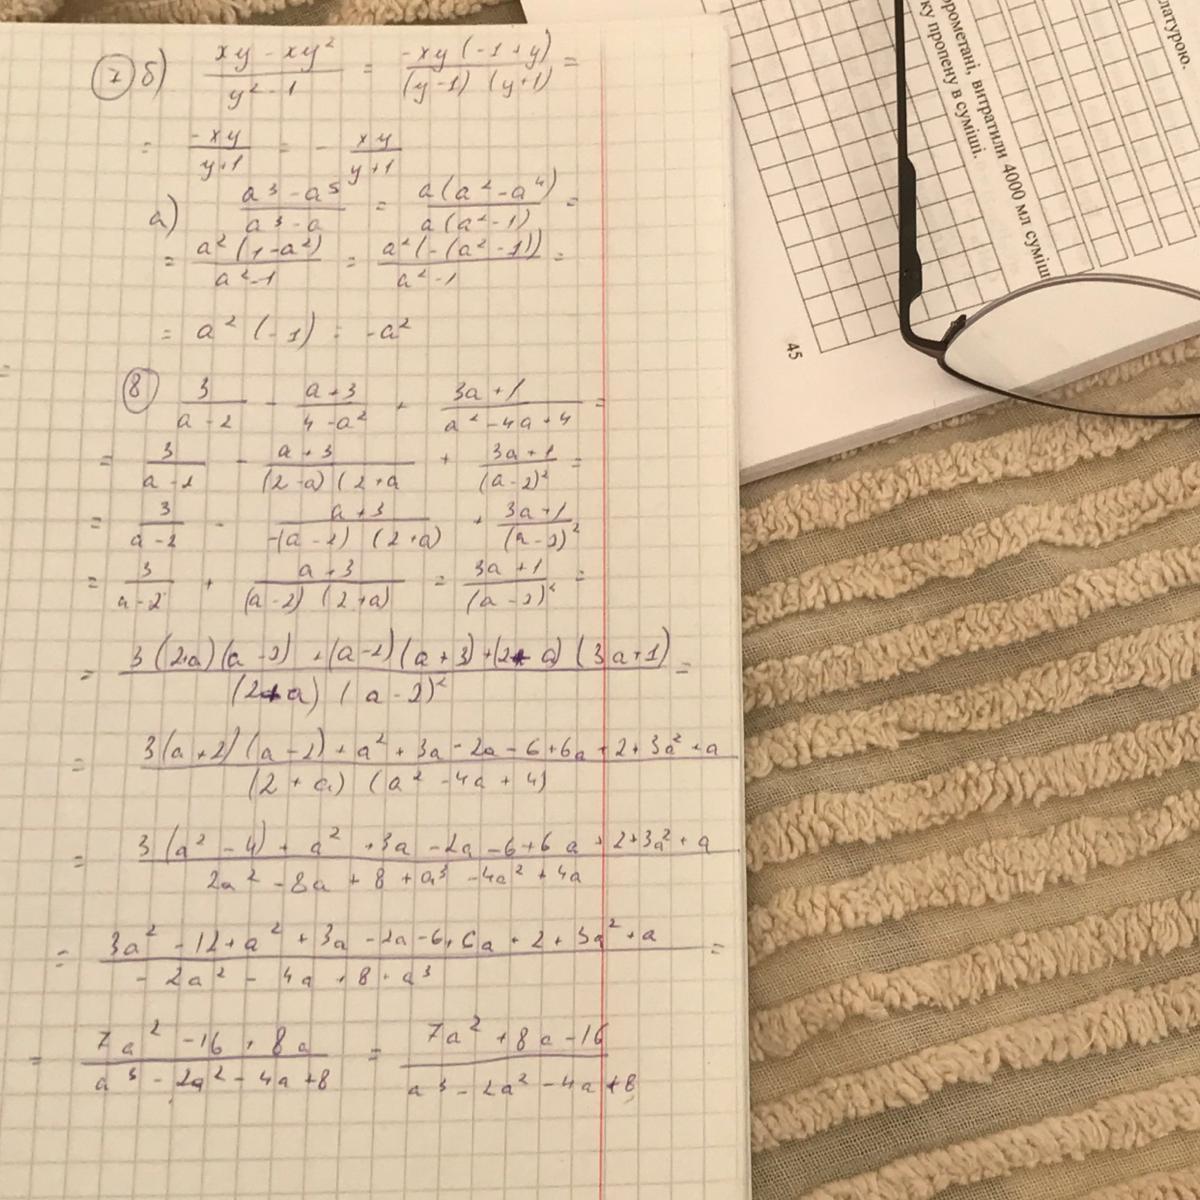 7 б) (xy - xy²)/(y² - 1) = (-xy(-1+y))/((y-1)(y+1)) =
= (-xy)/(y+1) = - (xy)/(y+1)
а) (a³ - a⁵)/(a³ - a) = (a(a² - a⁴))/(a(a² - 1)) =
= (a²(1-a²))/(a²-1) = (a²(-(a²-1)))/(a²-1) =
= a²(-1) = -a²
8 3/(a-2) - (a+3)/(4-a²) + (3a+1)/(a²-4a+4) =
= 3/(a-2) - (a+3)/((2-a)(2+a + (3a+1)/(a-2)² =
= 3/(a-2) - (a+3)/(-(a-2)(2+a)) + (3a+1)/(a-2)²
= 3/(a-2) + (a+3)/((a-2)(2+a)) = (3a+1)/(a-2)² =
= (3(2+a)(a-2) + (a-2)(a+3) + (2+a)(3a+1))/((2+a)(a-2)²) =
= (3(a+2)(a-2) + a² + 3a - 2a - 6 + 6a + 2 + 3a² + a)/((2+a)(a² - 4a + 4)
= (3(a²-4) + a² + 3a - 2a - 6 + 6a + 2 + 3a² + a)/(2a² - 8a + 8 + a³ - 4a² + 4a)
= (3a² - 12 + a² + 3a - 2a - 6 + 6a + 2 + 3a² + a)/(- 2a² - 4a + 8 + a³) =
= (7a² - 16 + 8a)/(a³ - 2a² - 4a + 8) = (7a² + 8a - 16)/(a³ - 2a² - 4a + 8)
=
латурою.
орометані, витратили 4000 мл суміш
ку пропену в суміші.
45